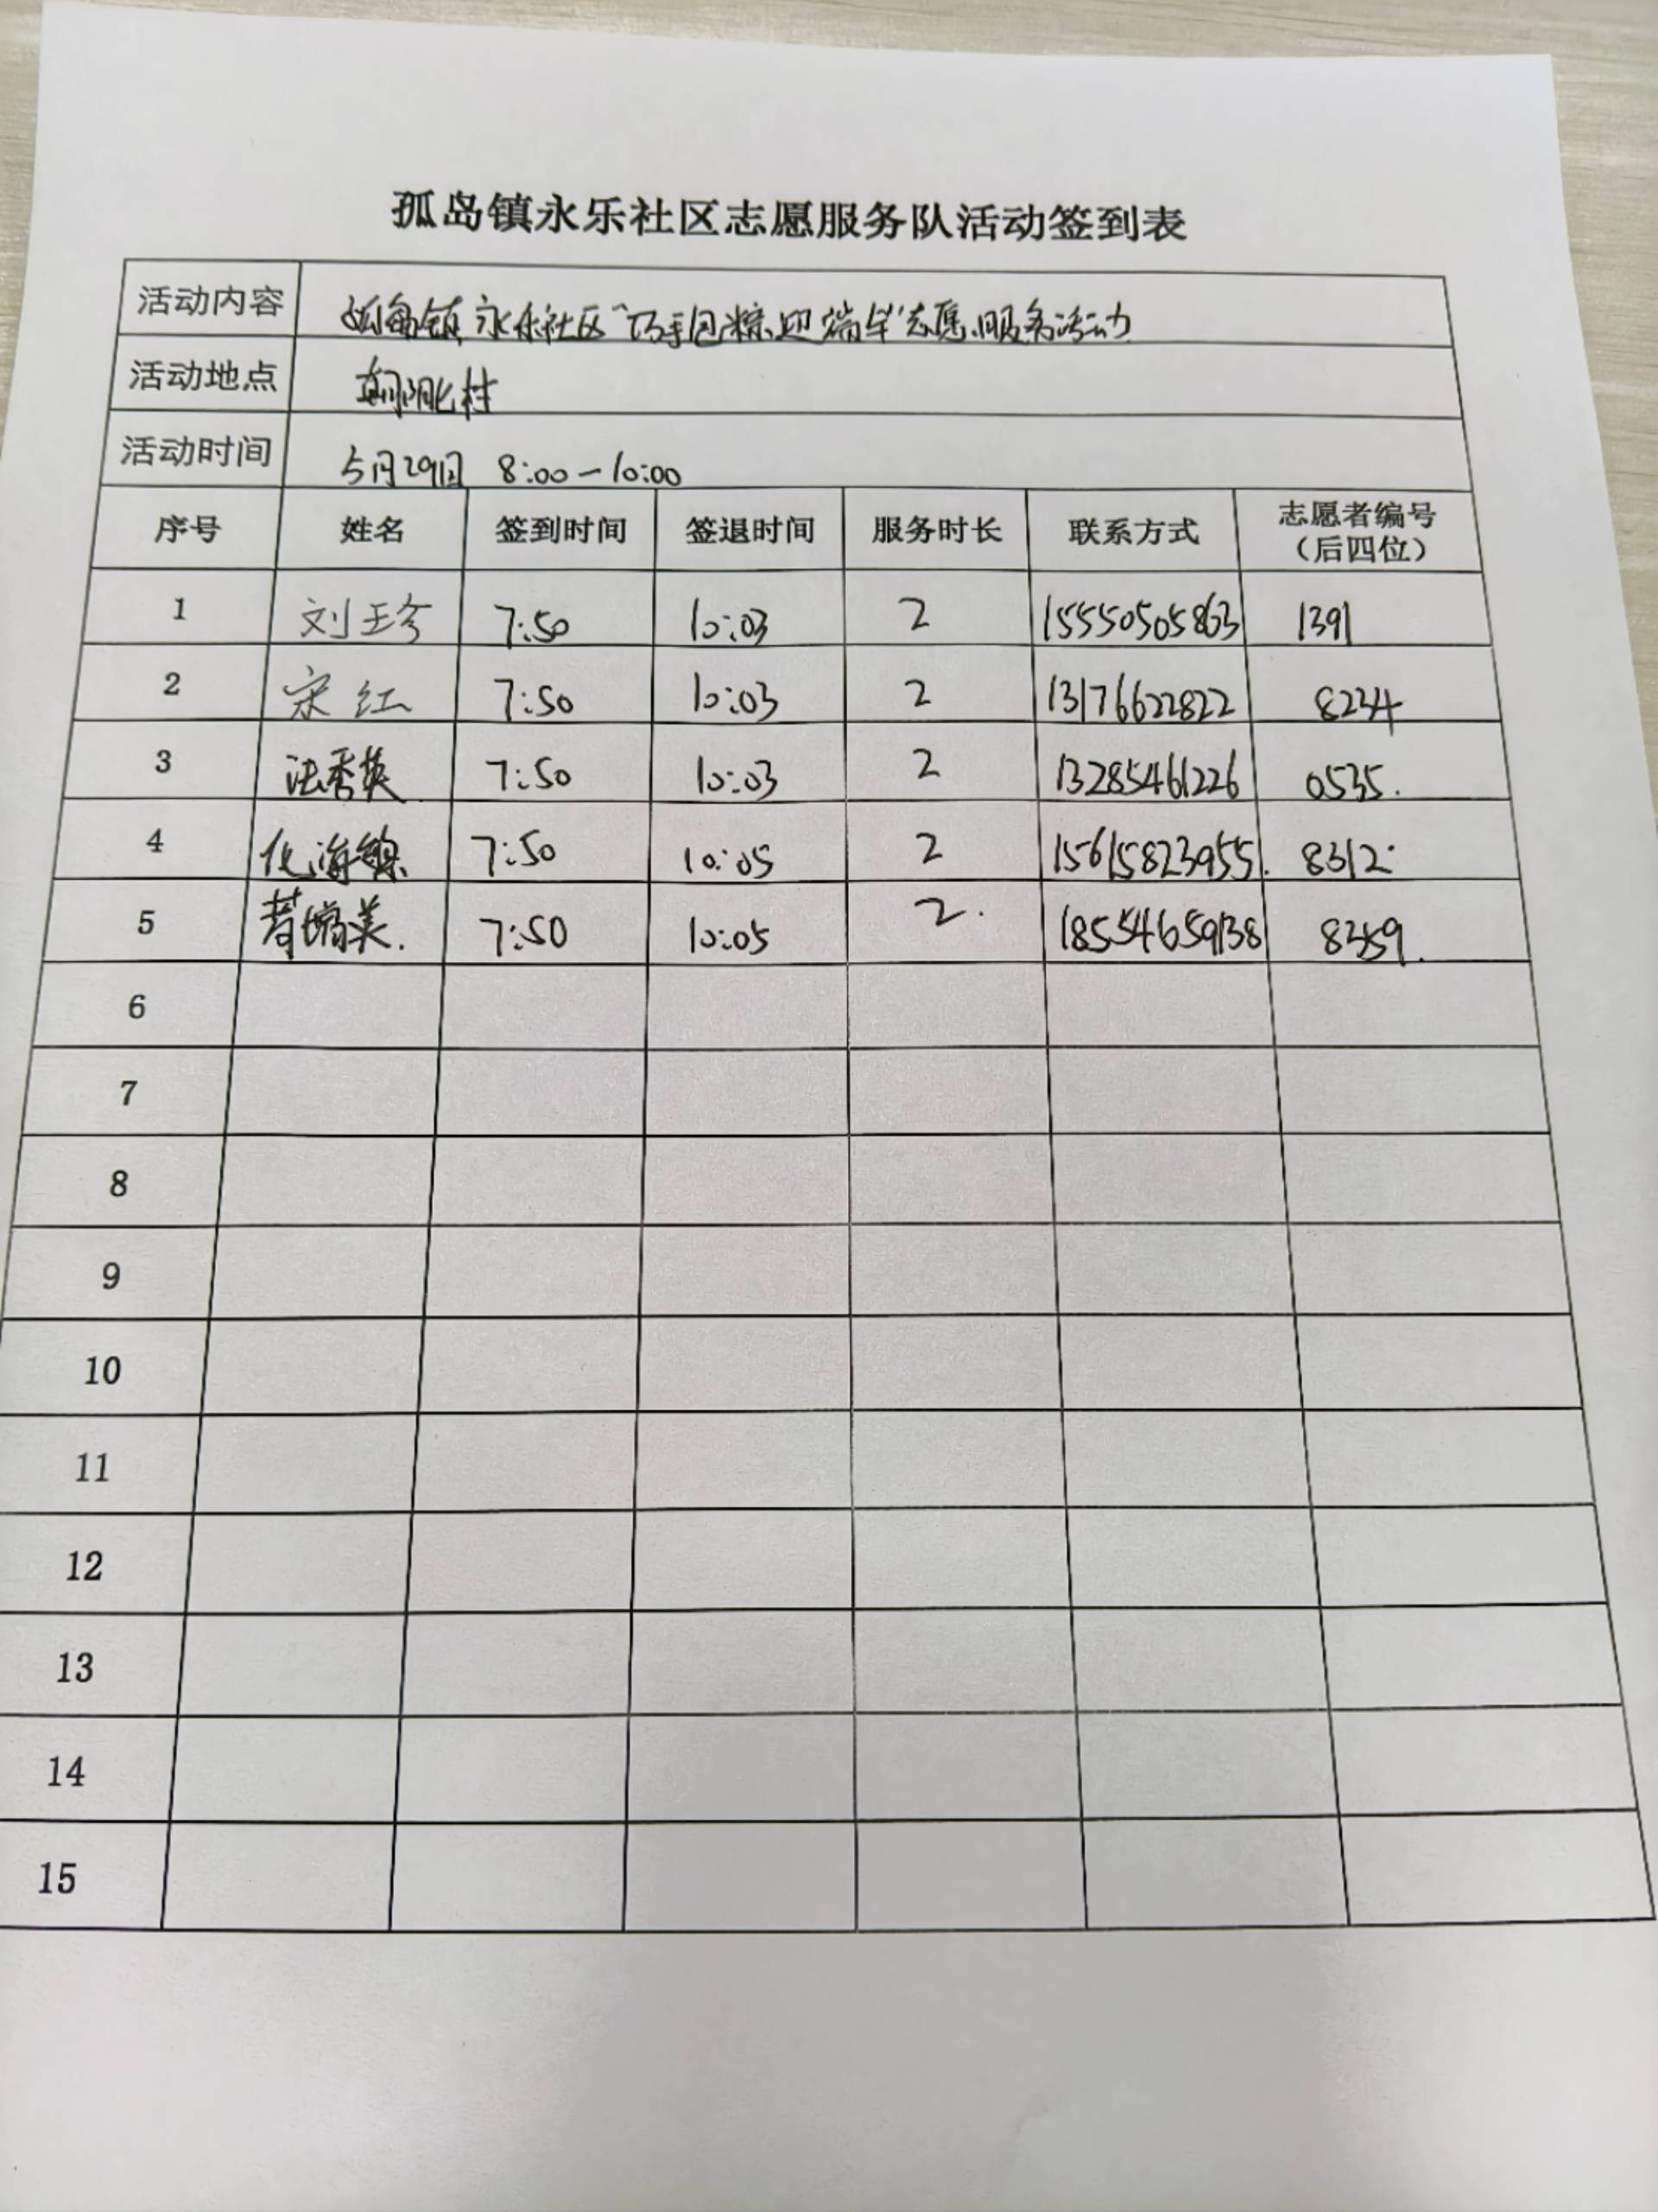 孤岛镇永乐社区志愿服务队活动签到表
活动内容 孤岛镇永乐社区“巧手包粽迎端午”志愿服务活动
活动地点 朝阳村
活动时间 5月29日 8:00-10:00
序号 姓名 签到时间 签退时间 服务时长 联系方式 志愿者编号（后四位）
1 刘玉珍 7:50 10:03 2 15550505863 1391
2 宋红 7:50 10:03 2 13176622822 8234
3 法秀英 7:50 10:03 2 13285461226 0535.
4 7:50 10:05 2 15615823955. 8312.
5 7:50 10:05 2. 18554659138 8359.
6
7
8
9
10
11
12
13
14
15